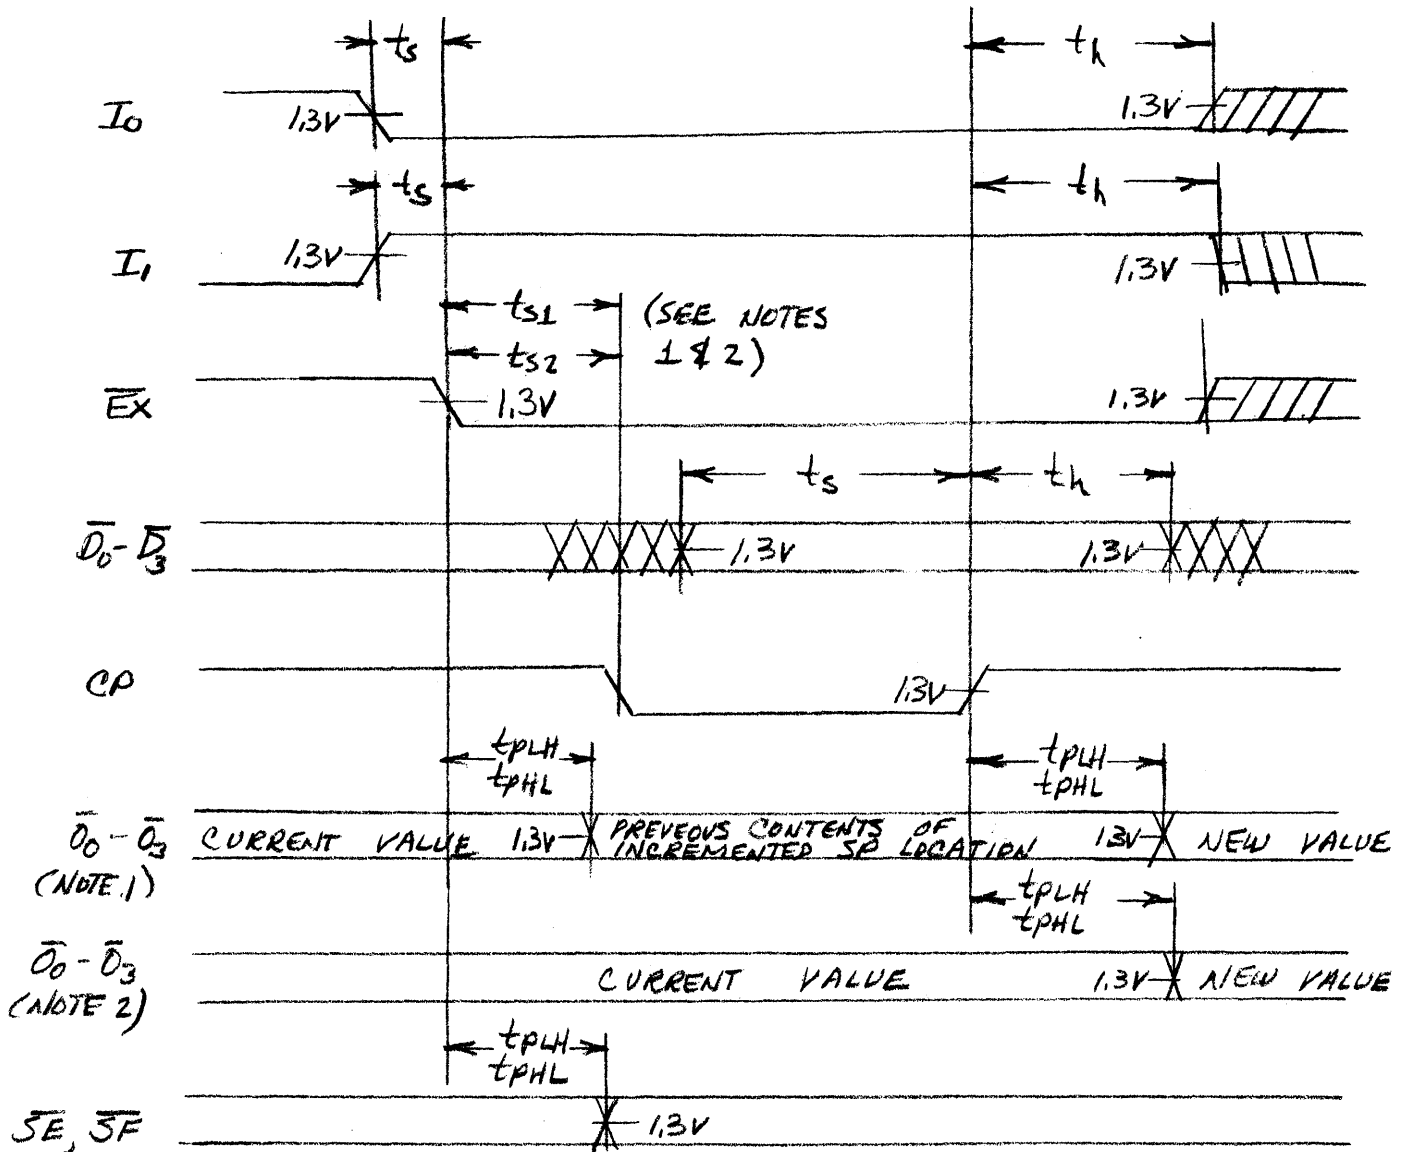 ts th
I0 1.3V 1.3V
ts th
I1 1.3V 1.3V
ts1 (SEE NOTES
ts2 1 & 2)
E̅X̅ 1.3V 1.3V
ts th
D̅0 - D̅3 1.3V 1.3V
CP 1.3V
tPLH tPLH
tPHL tPHL
O̅0 - O̅3 CURRENT VALUE 1.3V PREVEOUS CONTENTS OF 1.3V NEW VALUE
INCREMENTED SP LOCATION
(NOTE 1) tPLH
tPHL
O̅0 - O̅3 CURRENT VALUE 1.3V NEW VALUE
(NOTE 2)
tPLH
tPHL
S̅E̅, S̅F̅ 1.3V